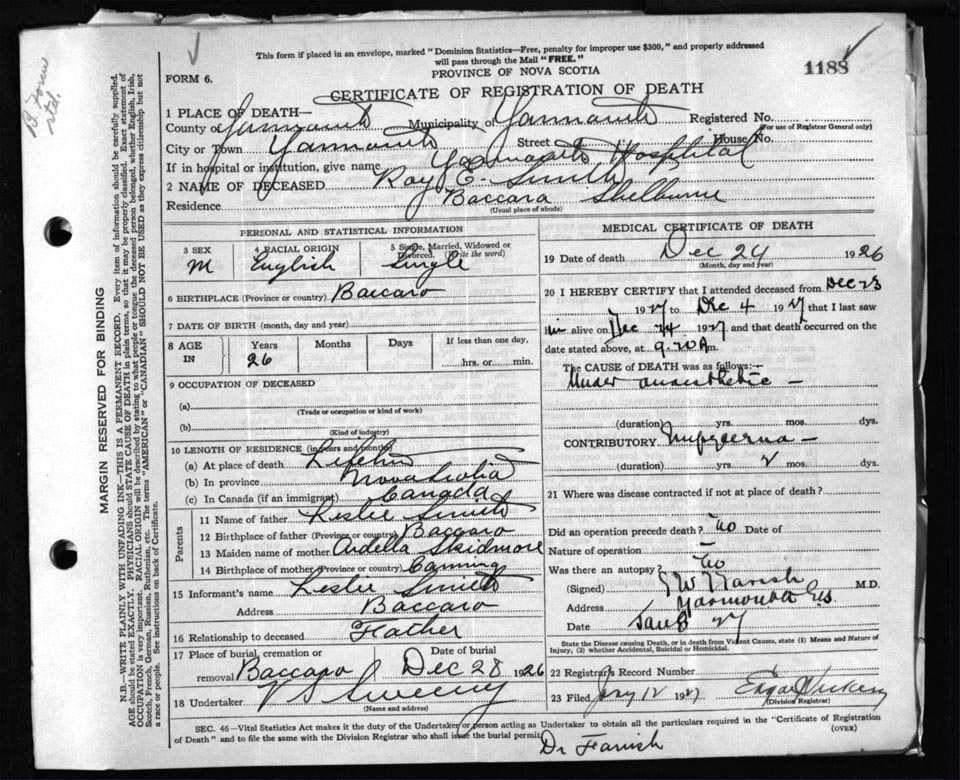 This form if placed in an envelope, marked "Dominion Statistics—Free, penalty for improper use $300," and properly addressed
will pass through the Mail "FREE."
PROVINCE OF NOVA SCOTIA
1188
FORM 6.
CERTIFICATE OF REGISTRATION OF DEATH
1 PLACE OF DEATH—
County of Yarmouth Municipality of Yarmouth Registered No.
(For use of Registrar General only)
City or Town Yarmouth Street House No.
If in hospital or institution, give name Yarmouth Hospital
2 NAME OF DECEASED Roy E. Smith
Residence Baccaro Shelburne
(Usual place of abode)
PERSONAL AND STATISTICAL INFORMATION
3 SEX M
4 RACIAL ORIGIN English
5 Single, Married, Widowed or Divorced. (Write the word) Single
6 BIRTHPLACE (Province or country) Baccaro
7 DATE OF BIRTH (month, day and year)
8 AGE IN Years 26 Months Days If less than one day, hrs. or min.
9 OCCUPATION OF DECEASED
(a)
(Trade or occupation or kind of work)
(b)
(Kind of industry)
10 LENGTH OF RESIDENCE (in years and months)
(a) At place of death Lifetime
(b) In province Nova Scotia
(c) In Canada (if an immigrant) Canada
Parents
11 Name of father Leslie Smith
12 Birthplace of father (Province or country) Baccaro
13 Maiden name of mother Ardella Skidmore
14 Birthplace of mother (Province or country) Canning
15 Informant's name Leslie Smith
Address Baccaro
16 Relationship to deceased Father
17 Place of burial, cremation or removal Baccaro Date of burial Dec 28 1926
18 Undertaker V S Sweeny
(Name and address)
MEDICAL CERTIFICATE OF DEATH
19 Date of death Dec 24 1926
(Month, day and year)
20 I HEREBY CERTIFY that I attended deceased from Dec 23
1927 to Dec 4 1927 that I last saw
him alive on Dec 24 1927 and that death occurred on the
date stated above, at 9.20 A m.
The CAUSE OF DEATH was as follows:—
Under anaesthetic —
(duration) yrs. mos. dys.
CONTRIBUTORY Empyema —
(duration) yrs. 2 mos. dys.
21 Where was disease contracted if not at place of death?
Did an operation precede death? no Date of
Nature of operation
Was there an autopsy? no
(Signed) Farish M.D.
Address Yarmouth N.S.
Date Jan 8 27
State the Disease causing Death, or in death from Violent Causes, state (1) Means and Nature of
Injury, (2) whether Accidental, Suicidal or Homicidal.
22 Registrar's Record Number
23 Filed Jany 12 1927
(Division Registrar)
SEC. 46—Vital Statistics Act makes it the duty of the Undertaker or person acting as Undertaker to obtain all the particulars required in the "Certificate of Registration
of Death" and to file the same with the Division Registrar who shall issue the burial permit.
(OVER)
Dr Farish
MARGIN RESERVED FOR BINDING
N.B.—WRITE PLAINLY WITH UNFADING INK—THIS IS A PERMANENT RECORD. Every item of information should be carefully supplied.
AGE should be stated EXACTLY. PHYSICIANS should STATE CAUSE OF DEATH in plain terms, so that it may be properly classified. Exact statement of
OCCUPATION is very important. RACIAL ORIGIN will be described by stating to what people or tongue the deceased person belonged, whether English, Irish,
Scotch, French, German, Russian, Ruthenian, etc. The terms "AMERICAN" or "CANADIAN" SHOULD NOT BE USED as they express citizenship but not
a race or people. See instructions on back of Certificate.